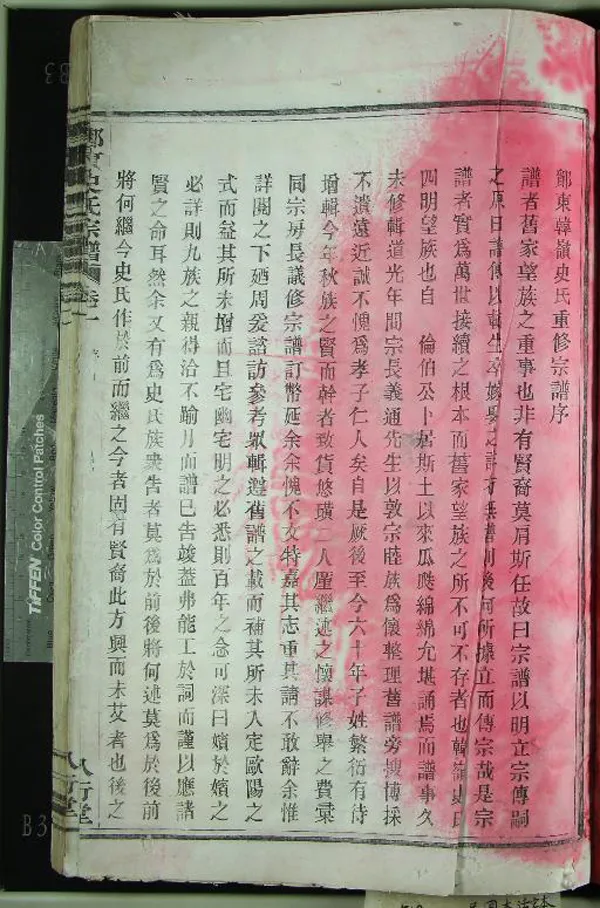 鄮東韓嶺史氏重修宗譜序
譜者舊家望族之重事也非有賢裔莫肩斯任故曰宗譜以明立宗傳嗣
之原日譜傳以載生卒嫁娶之詳方無譜則後何所據立而傳宗哉是宗
譜者實爲萬世接續之根本而舊家望族之所不可不存者也韓嶺史氏
四明望族也自 倫伯公卜居斯土以來瓜瓞綿綿允堪誦焉而譜事久
未修輯道光年間宗長義通先生以敦宗睦族爲懷整理舊譜旁搜博採
不遺遠近誠不愧爲孝子仁人矣自是厥後至今六十年子姓繁衍有待
增輯今年秋族之賢而幹者致貨悠璜二人屢繼述之懷謀修舉之費稟
同宗房長議修宗譜訂幣延余余愧不文特嘉其志重其請不敢辭余惟
詳閱之下廼周爰諮訪參考眾輯遵舊譜之載而補其所未入定歐陽之
式而益其所未增而且宅幽宅明之必悉則百年之念可深曰嬪於嬪之
必詳則九族之親得洽不踰月而譜已告竣蓋弗能工於詞而謹以應諸
賢之命耳然余又有爲史氏族衆告者莫爲於前後將何述莫爲於後前
將何繼今史氏作於前而繼之今者固有賢裔此方興而未艾者也後之
鄮東史氏宗譜 卷一
八行堂
B3
TIFFEN Color Control Patches